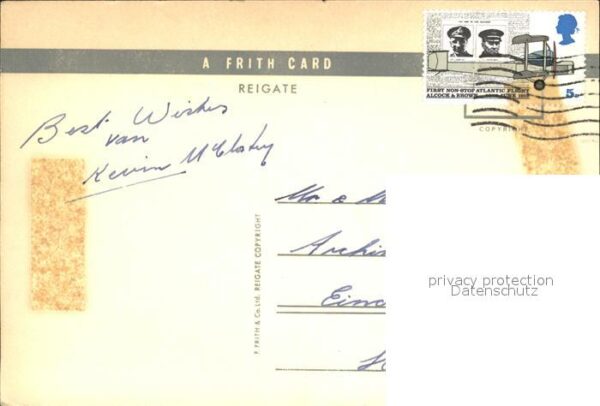 A FRITH CARD
REIGATE
FIRST NON-STOP ATLANTIC FLIGHT
ALCOCK & BROWN JUNE 1919
5D
COPYRIGHT
Best Wishes
van
Kevin
Mr & M
Archi
Einc
F. FRITH & Co. Ltd. REIGATE COPYRIGHT
privacy protection
Datenschutz